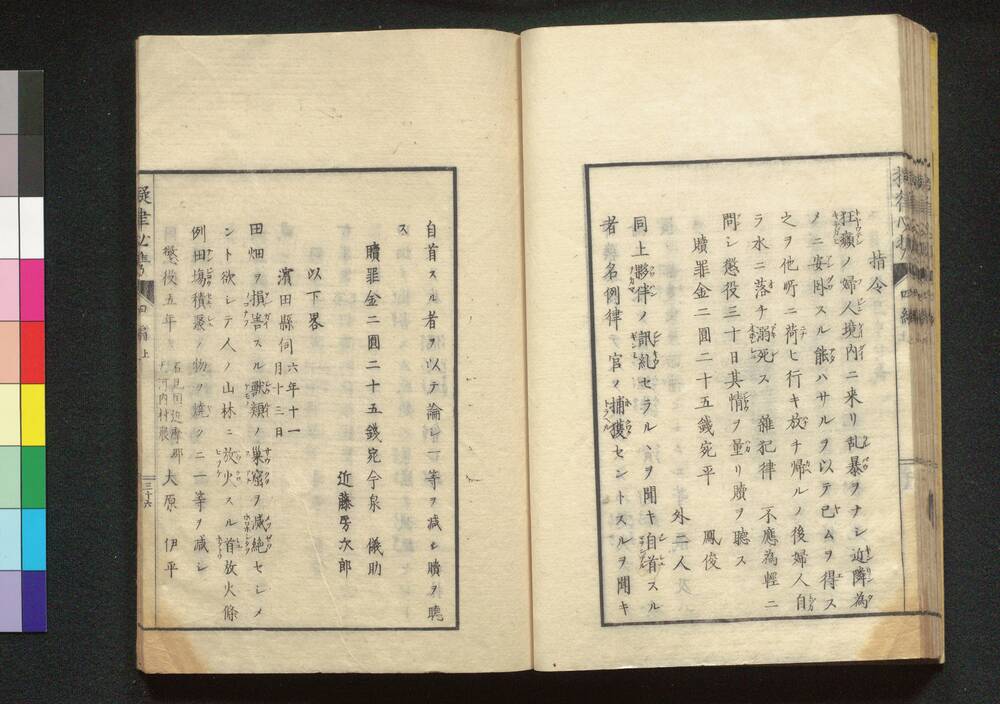 指令
狂癲ノ婦人境内ニ来リ乱暴ヲナシ近隣為
メニ安困スル能ハサルヲ以テ已ムヲ得ス
之ヲ他所ニ荷ヒ行キ放チ帰ルノ後婦人自
ラ水ニ落チ溺死ス 雑犯律 不應為輕ニ
問シ懲役三十日其情ヲ量リ贖ヲ聽ス
贖罪金二圓二十五錢宛平 鳳俊
外二人
同上夥伴ノ訊糺セラルヽヲ聞キ自首スル
者名例律ヲ官ノ捕獲セントスルヲ聞キ
自首スル者ヲ以テ論シ一等ヲ減シ贖ヲ聽
ス
贖罪金二圓二十五錢宛今泉 儀助
近藤房次郎
以下畧
濱田縣伺 六年十一月十三日
田畑ヲ損害スル獣類ノ巣窟ヲ滅絶セシメ
ント欲シテ人ノ山林ニ放火スル首放火條
例田塲積聚ノ物ヲ燒クニ二等ヲ減シ
懲役五年 石見国迩摩郡 河内村農 大原 伊平
擬律必携 四編 上
三十六